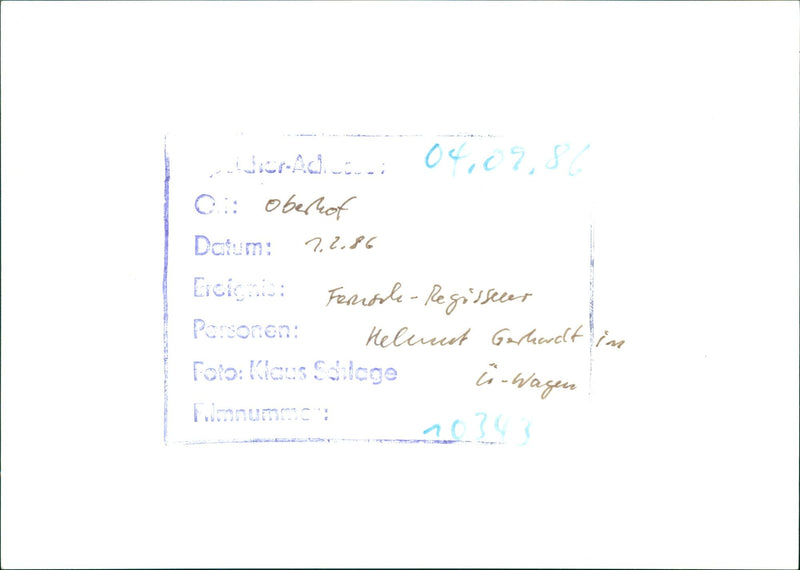 04.09.86
Ort: Oberhof
Datum: 1.2.86
Ereignis: Fernseh-Regisseur
Personen: Helmut Gerhardt im
Foto: Klaus Schlage Ü-Wagen
Filmnummer: 10343